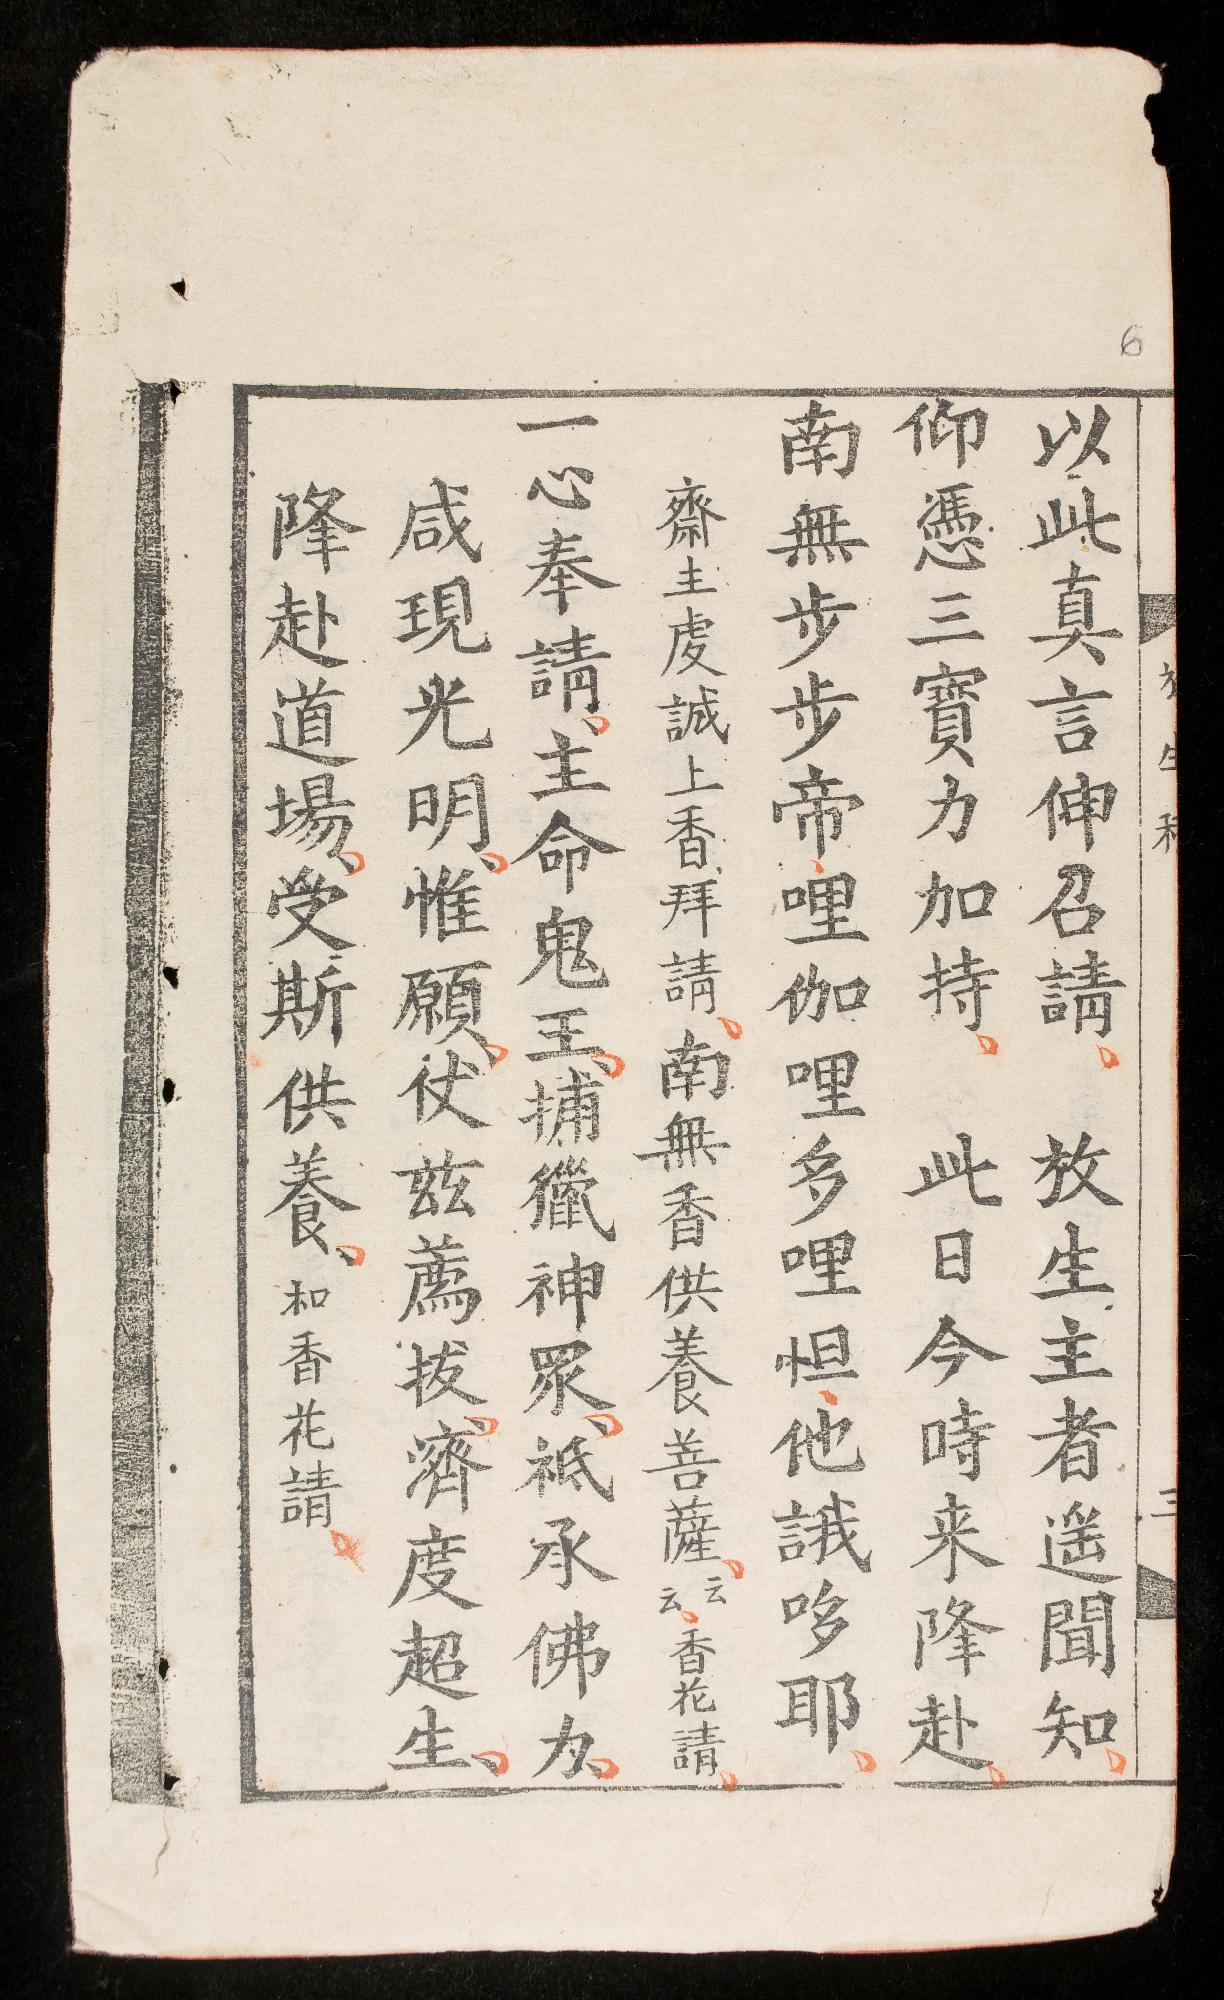 以此真言伸召請放生主者遥聞知
仰憑三寶力加持此日今時来降赴
南無步步帝哩伽哩多哩怛他誐哆耶
齋主虔誠上香拜請南無香供養菩薩云云香花請
一心奉請主命鬼王捕獵神眾祇承佛力
咸現光明惟願伏玆薦拔濟度超生
降赴道場受斯供養和香花請
放生科
三
6